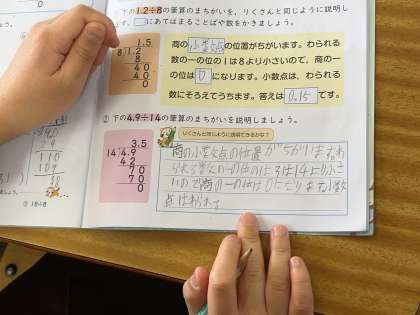 下の1.2÷8の筆算のまちがいを、りくさんと同じように説明し
にあてはまることばや数をかきましょう。
1.5
8)1.2
8
40
40
0
商の 小数点 の位置がちがいます。わられる
数の一の位の1は8より小さいので、商の一
の位は 0 になります。小数点は、わられる
数にそろえてうちます。答えは 0.15 です。
② 下の4.9÷14の筆算のまちがいを説明しましょう。
りくさんと同じように説明できるかな?
3.5
14)4.9
42
70
70
0
商の小数点の位置がちがいます。わ
られる数の一の位の4は14より小さ
いので商の一の位は0になります小数
点はわられて
110